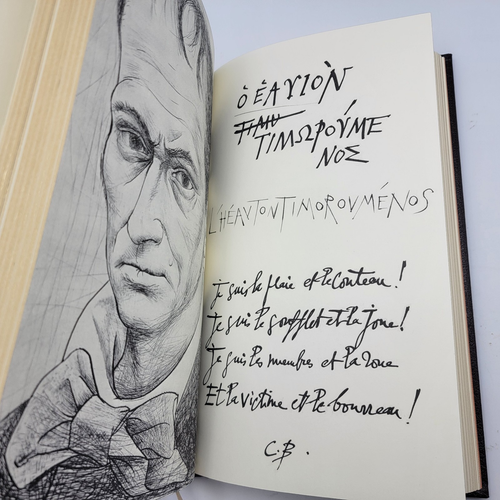 Ὁ ἙΑΥΤῸΝ
ΤΙΜΩΡΟΎΜΕ
ΝΟΣ
L'HÉAUTONTIMOROUMÉNOS
Je suis la plaie et le couteau !
Je suis le soufflet et la joue !
Je suis les membres et la roue
Et la victime et le bourreau !
C.B.